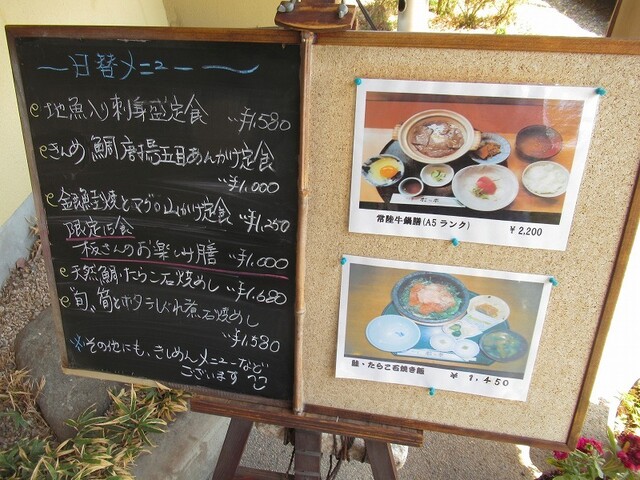 〜日替メニュー〜
地魚入り刺身盛定食
¥1,580
きんめ鯛唐揚五目あんかけ定食
¥1,000
金魂塩焼とマグロ山かけ定食 ¥1,250
限定15食
板さんのお楽しみ膳 ¥1,000
天然鯛・たらこ石焼めし
¥1,680
"旬"筍とホタテしぐれ煮石焼めし
¥1,580
※その他にも、きしめんメニューなど
ございます
常陸牛鍋膳(A5ランク)
¥2,200
鮭・たらこ石焼き飯
¥1,450